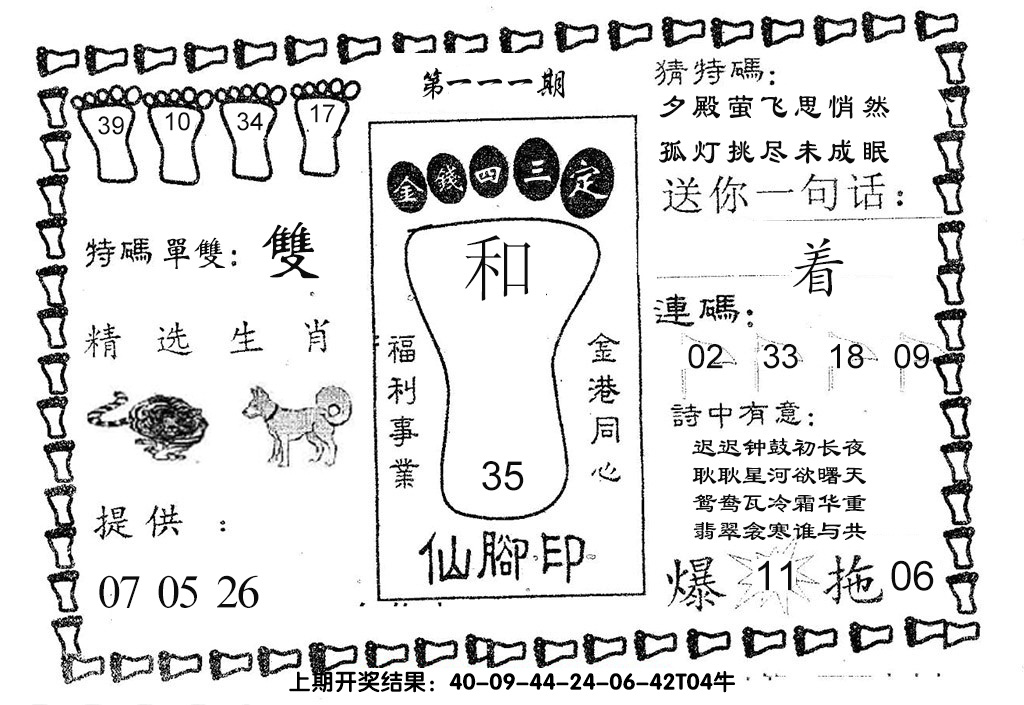 第一一一期
39 10 34 17
特碼單雙：雙
精选生肖
提供：
07 05 26
金錢四三定
和
福利事業
金港同心
35
仙腳印
猜特碼：
夕殿萤飞思悄然
孤灯挑尽未成眠
送你一句话：
着
連碼：
02 33 18 09
詩中有意：
迟迟钟鼓初长夜
耿耿星河欲曙天
鸳鸯瓦冷霜华重
翡翠衾寒谁与共
爆 11 拖 06
上期开奖结果：40-09-44-24-06-42T04牛